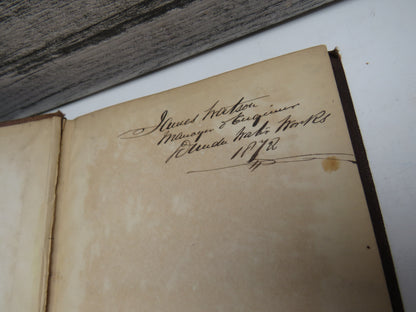 James Watson
Manager & Engineer
Dundee Water Works
1878